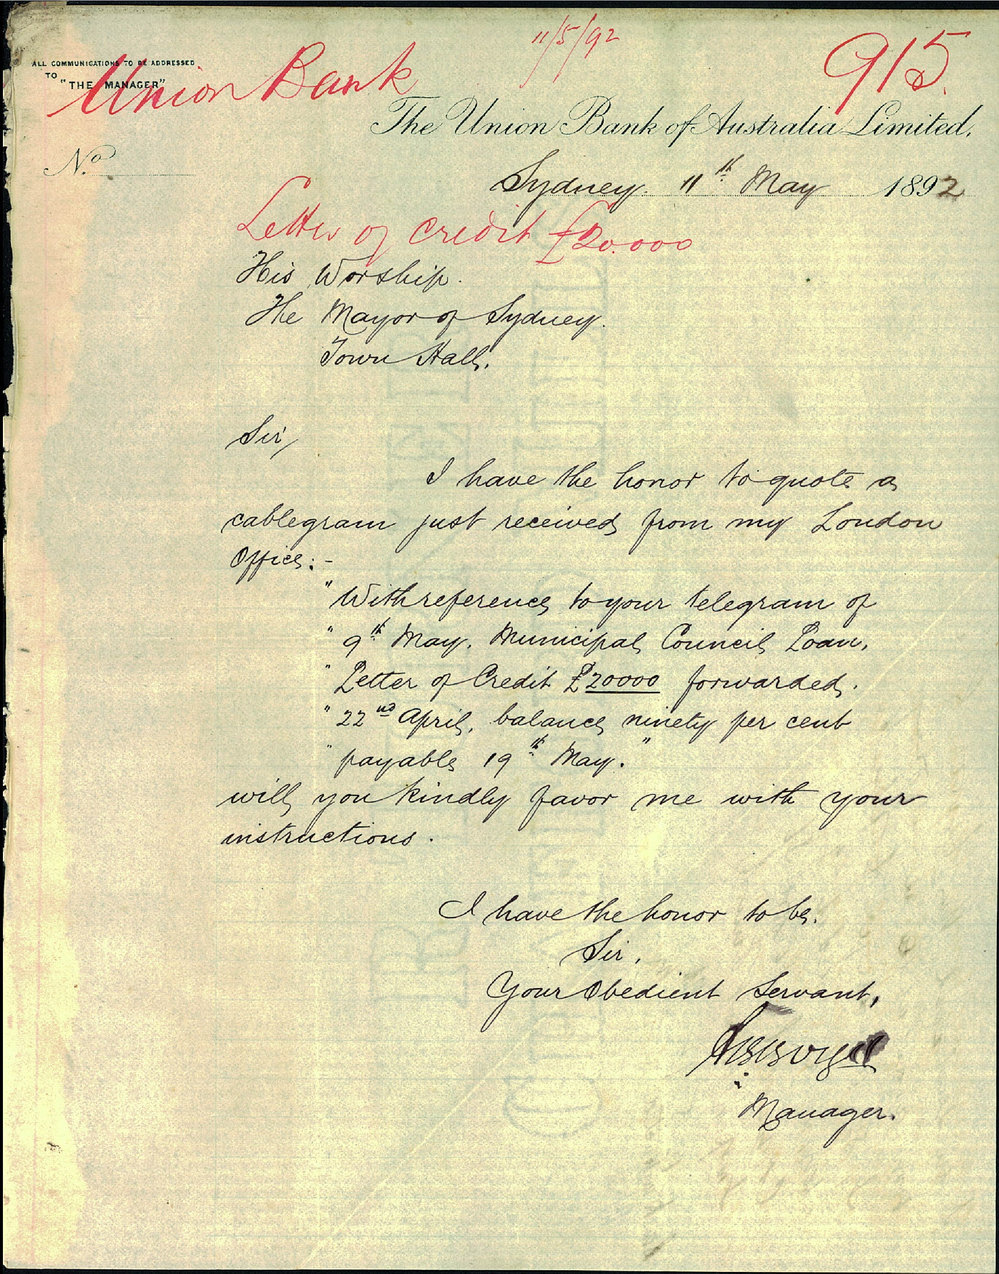 11/5/92
915.
ALL COMMUNICATIONS TO BE ADDRESSED
TO "THE MANAGER"
Union Bank
The Union Bank of Australia Limited.
No.
Sydney. 11th May 1892
Letter of Credit £20.000
His Worship.
The Mayor of Sydney.
Town Hall.
Sir,
I have the honor to quote a
cablegram just received from my London
Office:-
"With reference to your telegram of
" 9th May. Municipal Council Loan,
" Letter of Credit £20000 forwarded.
" 22nd April, balance ninety per cent
" payable 19th May."
will you kindly favor me with your
instructions.
I have the honor to be,
Sir,
Your Obedient Servant,
Manager.